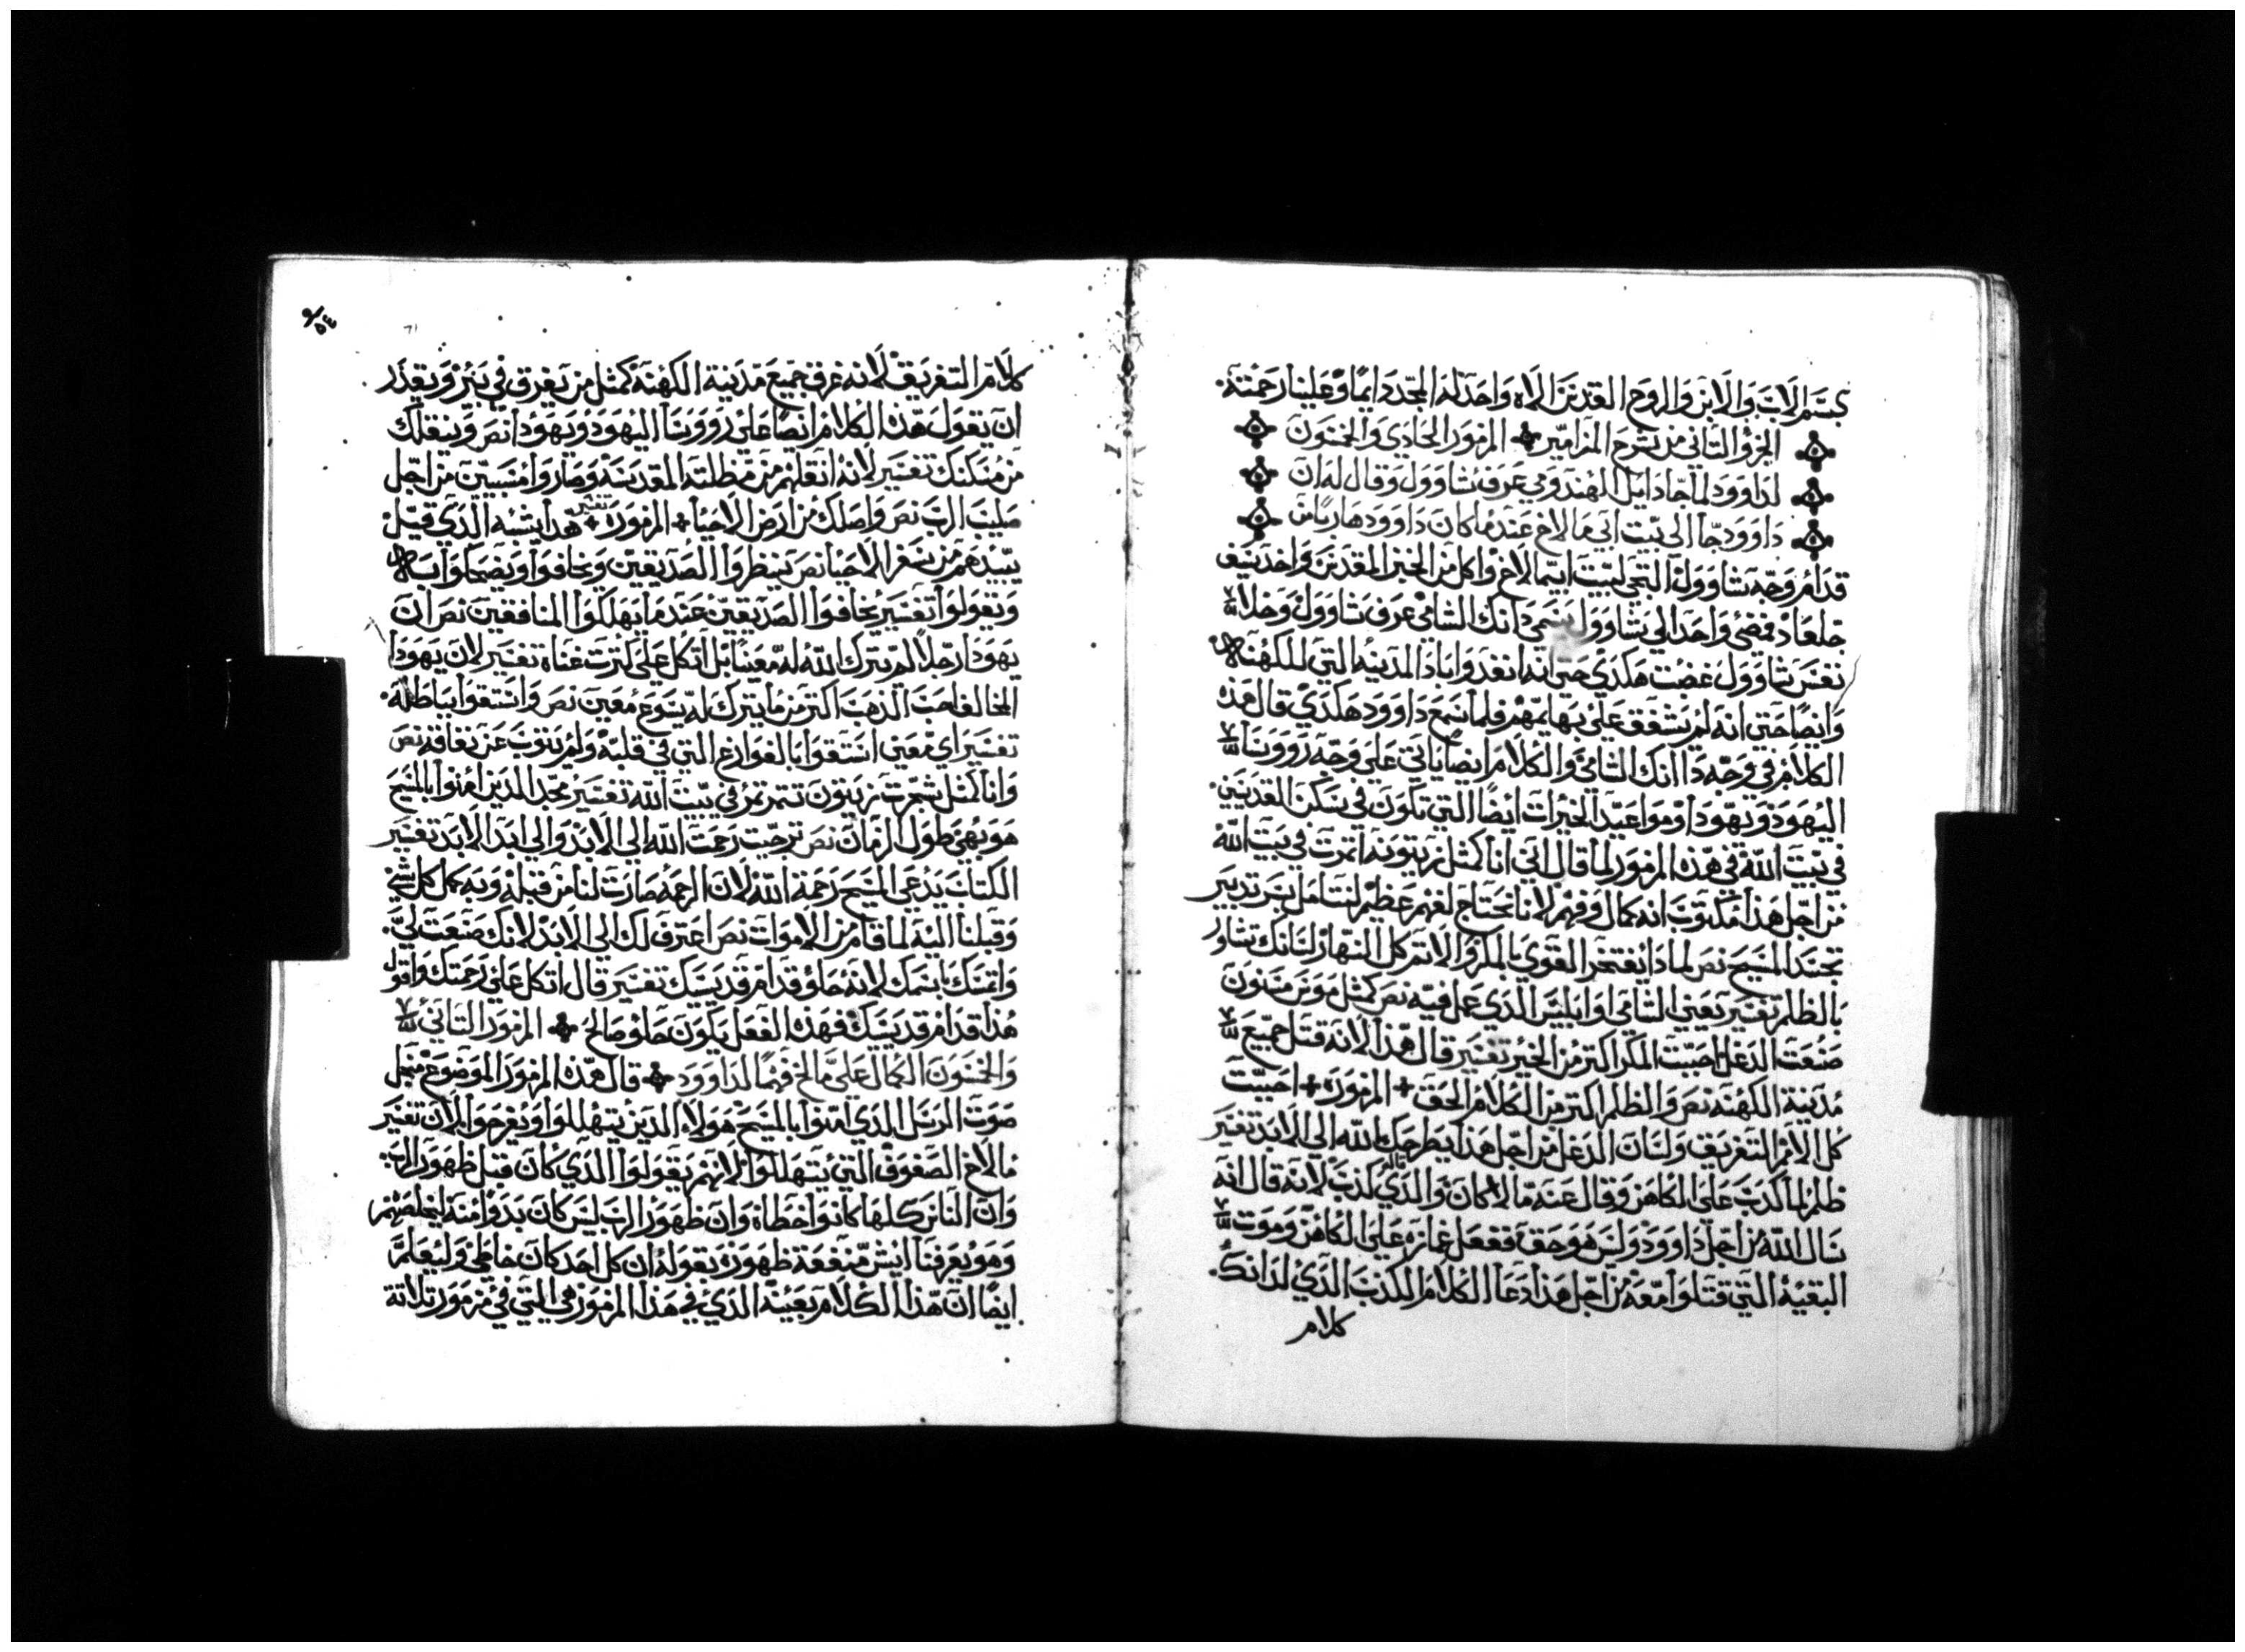 بسم الاب والابن والروح القدس الاه واحد له المجد دايما وعلينا رحمته.
الجزو التاني من شرح المزامير المزمور الحادي والخمسون
لداوود لما جاء دايك الهندومي عرف شاوول وقال له ان
داوود جا الى بيت ابي مالاخ عندما كان داوود هاربا من
قدام وجه شاوول التجى لبيت ابيمالاخ واكل من الخبز المقدس واخد سيف
جلعاد فمضى واحد الي شاوول يسمى دانك الشامي عرف شاوول وخلا
نفس شاوول غضبت هكدي حتى انه انفد واباد المدينه التي للكهنه
وايضا حتى انه لم يشفق على بهايمهم فلما سمع داوود هكدي قال هده
الكلام في وجه دا انك الشامي والكلام ايضا ياتي على وجه رووسا
اليهود ويهودا ومواعيد الخيرات ايضا التي تكون في سكن القديسين
في بيت الله في هده المزمور لما قال انني انا كمثل زيتونه اتمرت في بيت الله
من اجل هدا مكتوب انه كمال وفهم لانا نحتاج لفهم عظيم لنتامل بسر تدبير
تجسد المسيح نص لمادا يفتخر القوي بالمكر والاتم كل النهار لسانك تشاور
بالظلم تفسير يعني الشامي او ابليس الدي عمل فيه نص كمثل موس مسنون
صنعت الدغل احببت المكر اكتر من الخير تفسير قال هدا لانه قتل جميع
مدينة الكهنه نص والظلم اكتر من الكلام الحق + المزمور + احببت
كل الامر التغريق ولسان الدغل من اجل هدا يطرحك الله الى الابد تفسير
ظلم لما كدب على الكاهن وقال عنه مالا كان والدي كدب لانه قال انه
سال الله من اجل داوود وليس هو حق ففعل غمازه على الكاهن وموت
البقيه التي قتلوا معه من اجل هدا دعا الكلام الكدب الدي لدانك.
كلام
كلام التغريق لانه غرق جميع مدينة الكهنه كمثل من يغرق في بير ويقدر
ان يقول هده الكلام ايضا على رووسا اليهود ويهودا نص وينقلك
من مسكنك تفسير لانه انقلهم من مظلته المقدسه وصاروا منسيين من اجل
صليب الرب نص واصلك من ارض الاحيا + المزمور + تفسير هدا يشبه الدي قيل
يبيدهم من سفر الاحيا نص ينظروا الصديقين ويخافوا ويضحكوا
ويقولوا تفسير يخافوا الصديقين عندما يهلكوا المنافقين نص ان
يهودا رجلا لم يترك الله له معينا بل اتكل على كترت غناه تفسير لان يهودا
المخالف احب الدهب اكتر من ما يترك له يسوع معين نص واستقوا بباطله.
تفسير اي معين استقوا بالفوارغ التي في قلبه ولم يتوب عن نفاقه نص
وانا كمثل شجرت زيتون تتمر تمر في بيت الله تفسير مجد الدين امنوا بالمسيح
هو بهي طول الزمان نص ترجيت رحمت الله الى الابد والى ابد الابد تفسير
الكتاب يدعي المسيح رحمة الله لان الرحمه صارت لنا من قبله وبه كمل كل شي
وقبلنا اليه لما قام من الاموات نص اعترف لك الى الابد لانك صنعت لي.
واتمسك باسمك لانه حلو قدام قديسك تفسير قال اتكل على رحمتك واقول
هدا قدام قديسك فهده الفعل يكون حلو صالح المزمور التاني
والخمسون الكمال على مالخ فهما لداوود قال هده المزمور الموضوع من اجل
صوت الرسل الدي امنوا بالمسيح هولاء الدين يتهللوا ويفرحوا لان تفسير
مالاخ الصفوف التي يتهللوا لانهم يقولوا الدي كان قبل ظهور الرب.
وان الناس كلها كانوا خطاة وان ظهور الرب ليس كان بدوا منه ليخلصهم
وهو يعرفنا ايش منفعة ظهوره بقوله ان كل احد كان خاطي وليعلم
ايضا ان هدا الكلام بعينه الدي في هدا المزمور هي التي في مزمور تلاتة